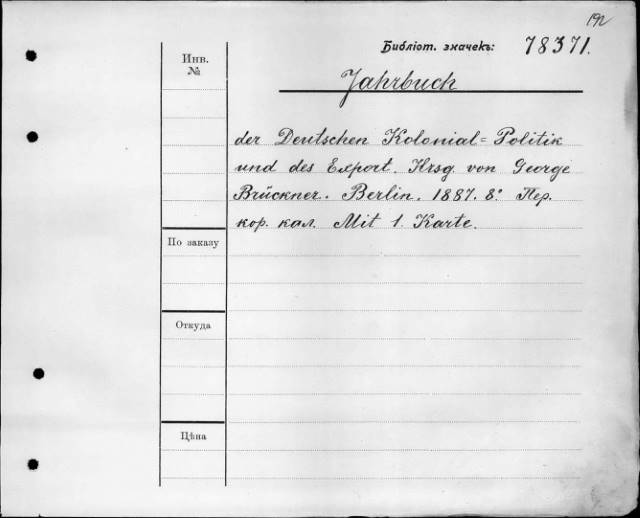 192
Библіот. значекъ: 78371.
Инв.
№
Jahrbuch
der Deutschen Kolonial=Politik
und des Export. Hrsg. von George
Brückner. Berlin. 1887. 8º Пер.
кор. кал. Mit 1 Karte.
По заказу
Откуда
Цѣна